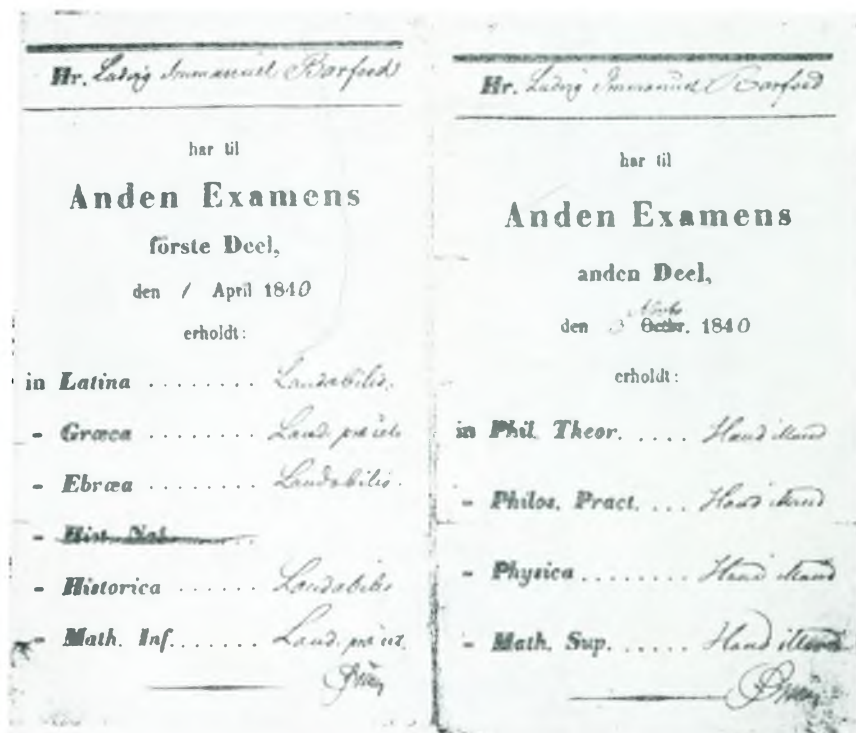 Hr. Ludvig Immanuel Barfoed
har til
Anden Examens
første Deel,
den 1 April 1840
erholdt:
in Latina ........ Laudabilis.
- Græca ........ Laud. præ cet.
- Ebræa ........ Laudabilis.
- Hist. Nat.
- Historica ...... Laudabilis
- Math. Inf. ...... Laud. præ cet.
Hr. Ludvig Immanuel Barfoed
har til
Anden Examens
anden Deel,
den 3 Octbr. 1840
erholdt:
in Phil. Theor. ..... Haud illaud
- Philos. Pract. ... Haud illaud
- Physica ........ Haud illaud
- Math. Sup. ..... Haud illaud